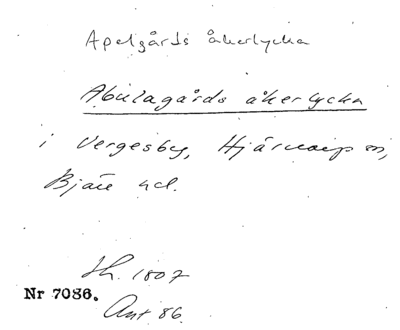 Apelgårds åkerlycka
Abulagårds åkerlycka
i Vergesby, Hjärnarp sn,
Bjäre hd.
Sh. 1807
Nr 7086.
Ant 86.